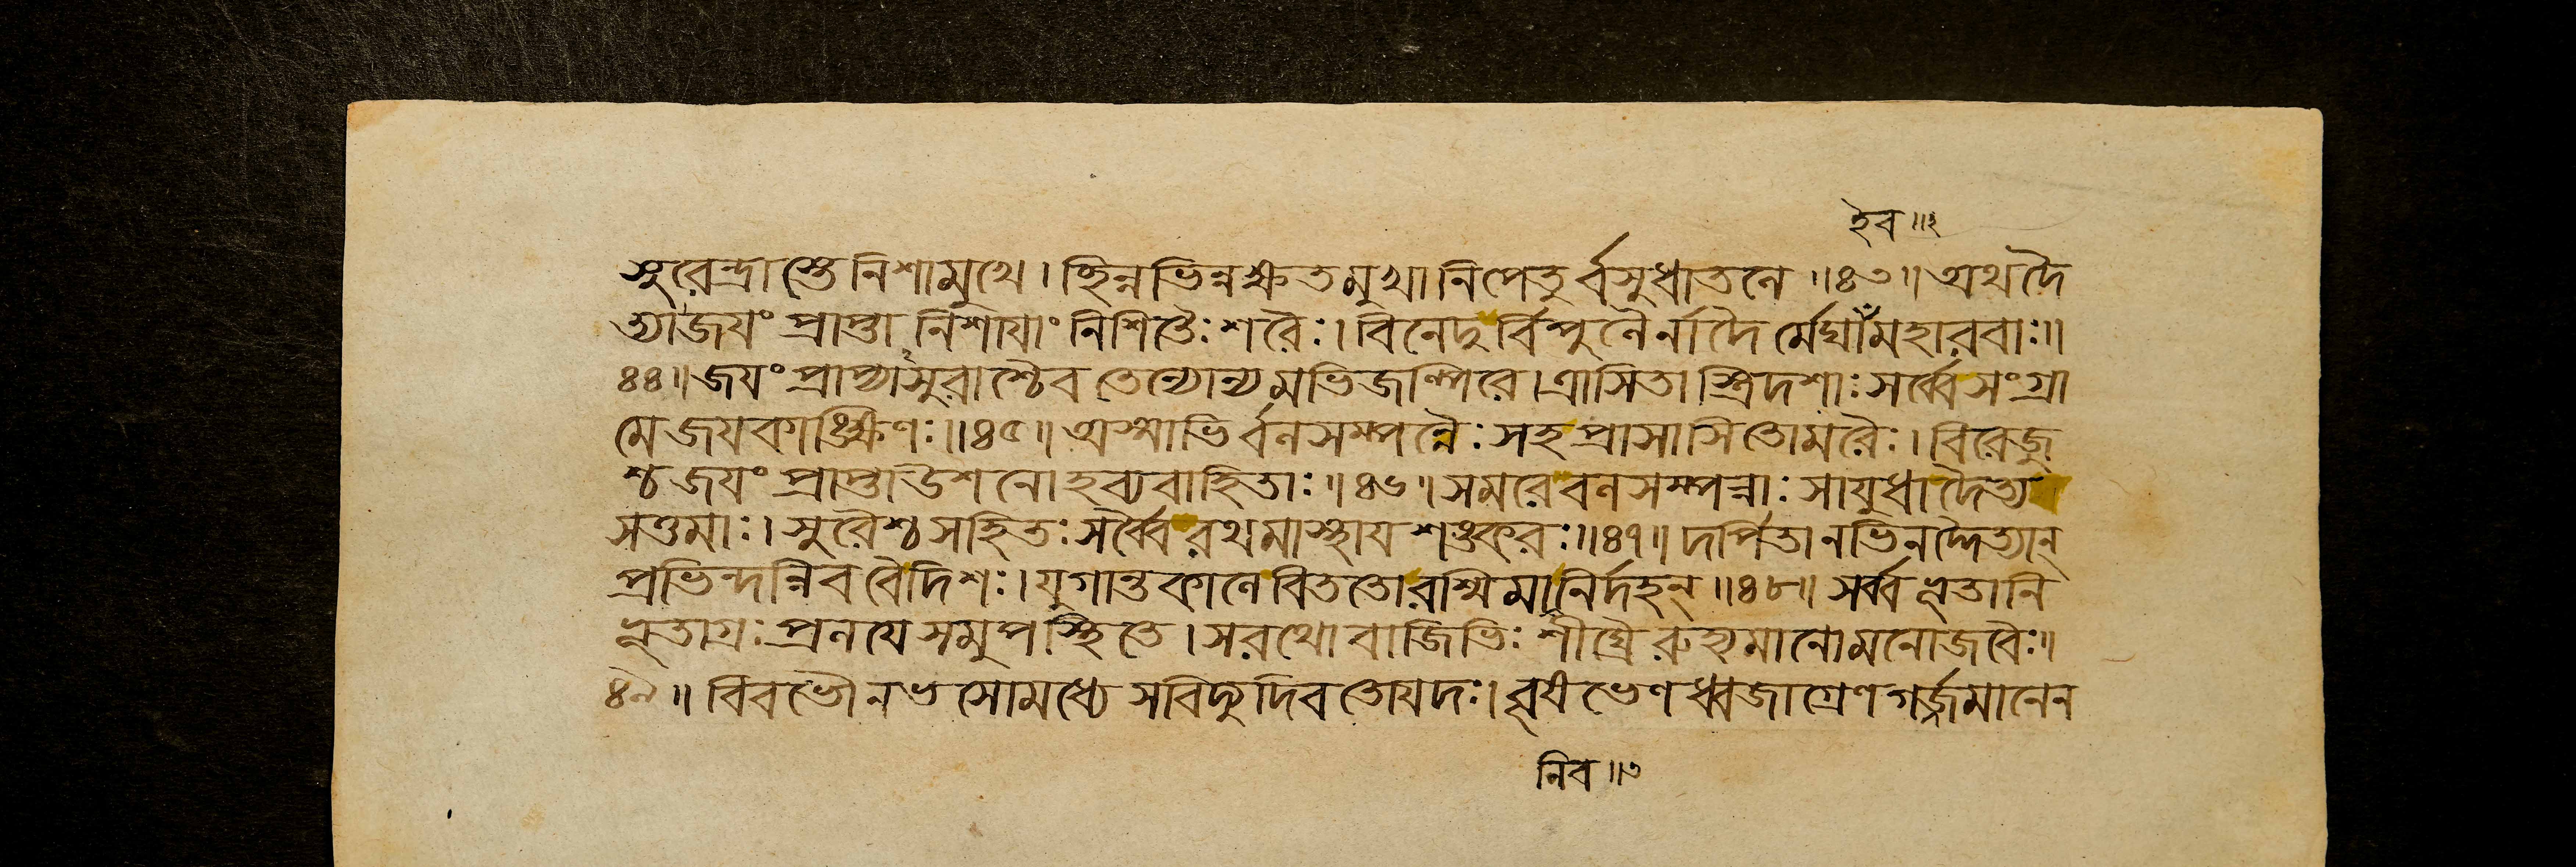 হৈব ॥২
সুরেন্দ্রাস্তে নিশামুখে । ছিন্নভিন্নক্ষতমুখা নিপেতুর্ব্বসুধাতলে ॥ ৪৩ ॥ অথ দৈ
ত্যা জয়ং প্রাপ্তা নিশায়াং নিশিতৈঃ শরৈঃ । বিনেদুর্বিপুলৈর্নাদৈ র্মেঘাঁ মহারবাঃ ॥
৪৪ ॥ জয়ং প্রাপ্যাসুরাশ্চৈব তেন্যোন্যমভিজল্পিরে । ত্রাসিতাস্ত্রিদশাঃ সর্ব্বে সংগ্রা
মে জয়কাঙ্ক্ষিণঃ ॥ ৪৫ ॥ অস্মাভির্বলসম্পন্নৈঃ সহ প্রাসাসিতোমরৈঃ । বিরেজু
শ্চ জয়ং প্রাপ্তা উশনোহব্যবাহিতাঃ ॥ ৪৬ ॥ সমরে বলসম্পন্নাঃ সায়ুধা দৈত্য
সত্তমাঃ । সুরৈশ্চ সহিতঃ সর্ব্বৈ রথমাস্থায় শঙ্করঃ ॥ ৪৭ ॥ দর্পিতানভিনদ্দৈত্যান্
প্রভিন্দন্নিব বৈ দিশঃ । যুগান্তকালে বিততো রশ্মিমানির্দহন্ ॥ ৪৮ ॥ সর্ব্বভূতানি
ভূতাগ্রঃ প্রলয়ে সমুপস্থিতে । স রথো বাজিভিঃ শীঘ্রৈ রুহ্যমানো মনোজবৈঃ ॥
৪৯ ॥ বিবভৌ নভসো মধ্যে সবিদ্যুদিব তোয়দঃ । বৃষভেণ ধ্বজাগ্রেণ গর্জ্জমানেন
নিব ॥৩